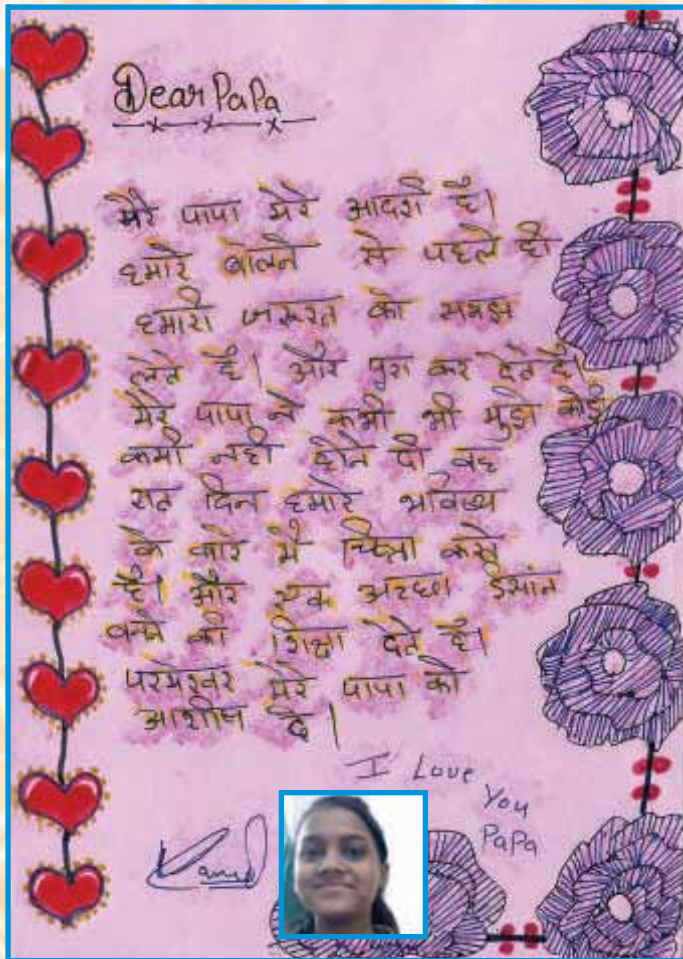 Dear PaPa
मेरे पापा मेरे आदर्श है।
हमारे बोलने से पहले ही
हमारी जरूरत को समझ
लेते है। और पुरा कर देते है।
मेरे पापा ने कभी भी मुझे कोई
कमी नही होने दी वह
रात दिन हमारे भविष्य
के बारे में चिन्ता करते
है। और एक अच्छा इंसान
बनने की शिक्षा देते है।
परमेश्वर मेरे पापा को
आशीष दे।
I Love
You
PaPa